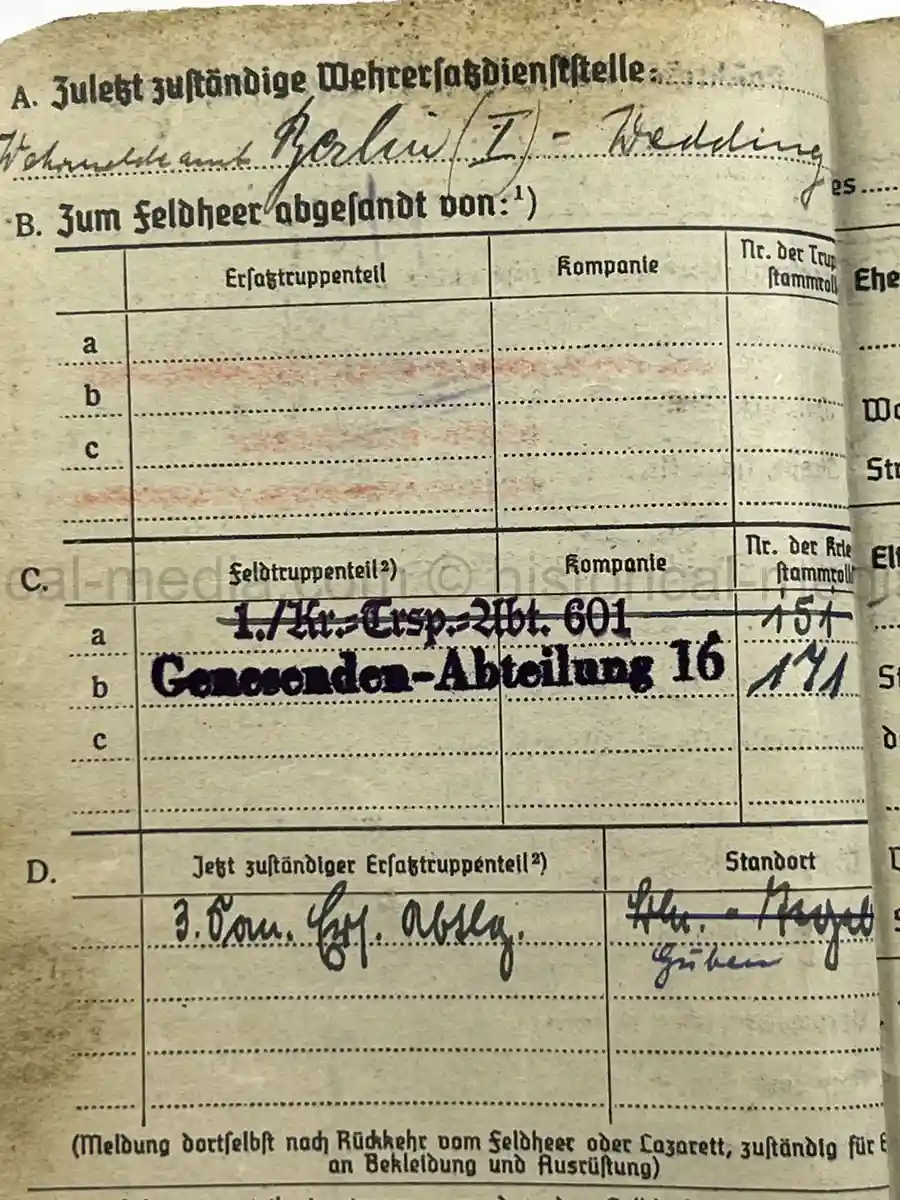 A. Zuletzt zuständige Wehrersatzdienststelle:
Wehrmeldeamt Berlin (I) - Wedding
es
B. Zum Feldheer abgesandt von:¹)
Ersatztruppenteil Kompanie Nr. der Trup
stammroll
Ehe
a
b
Wo
c
Str
C. Feldtruppenteil²) Kompanie Nr. der Krie
stammroll
Elt
a 1./Kr.=Trsp.=Abt. 601 151
b Genesenden-Abteilung 16 171
St
c
d
D. Jetzt zuständiger Ersatztruppenteil²) Standort
3. San. Ers. Abtlg. Bln. -
Guben
(Meldung dortselbst nach Rückkehr vom Feldheer oder Lazarett, zuständig für E
an Bekleidung und Ausrüstung)